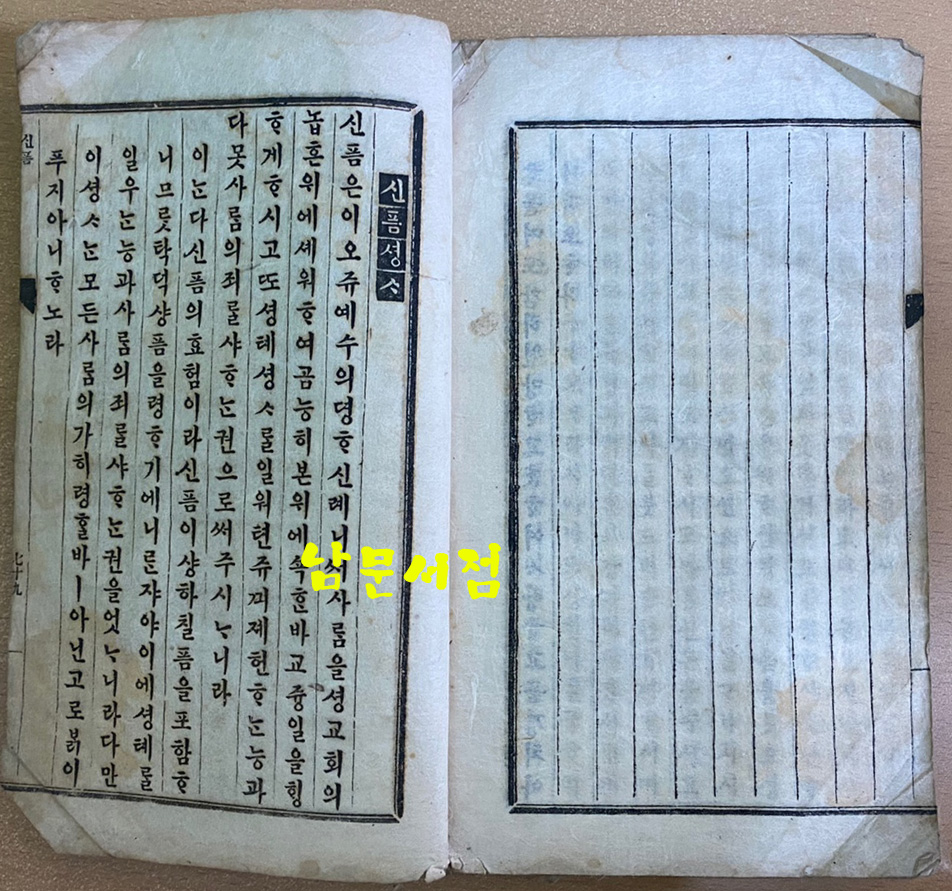 신픔셩ᄉᆞ
신픔은이오쥬예수의뎡ᄒᆞ신례니써사ᄅᆞᆷ을셩교회의
놉흔위에셰워ᄒᆞ여곰능히본위에쇽ᄒᆞᆫ바교즁일을ᄒᆡᆼ
ᄒᆞ게ᄒᆞ시고ᄯᅩ셩톄셩ᄉᆞᄅᆞᆯ일워텬쥬ᄭᅴ졔헌ᄒᆞᄂᆞᆫ능과
다못사ᄅᆞᆷ의죄ᄅᆞᆯ샤ᄒᆞᄂᆞᆫ권으로써주시ᄂᆞ니라
이ᄂᆞᆫ다신픔의효험이라신픔이샹하칠픔을포함ᄒᆞ
니므릇탁덕샹픔을령ᄒᆞ기에니ᄅᆞᆫ쟈야이에셩톄ᄅᆞᆯ
일우ᄂᆞᆫ능과사ᄅᆞᆷ의죄ᄅᆞᆯ샤ᄒᆞᄂᆞᆫ권을엇ᄂᆞ니라다만
이셩ᄉᆞᄂᆞᆫ모든사ᄅᆞᆷ의가히령ᄒᆞᆯ바ㅣ아닌고로붉이
푸지아니ᄒᆞ노라
신픔
七十九
남문서점